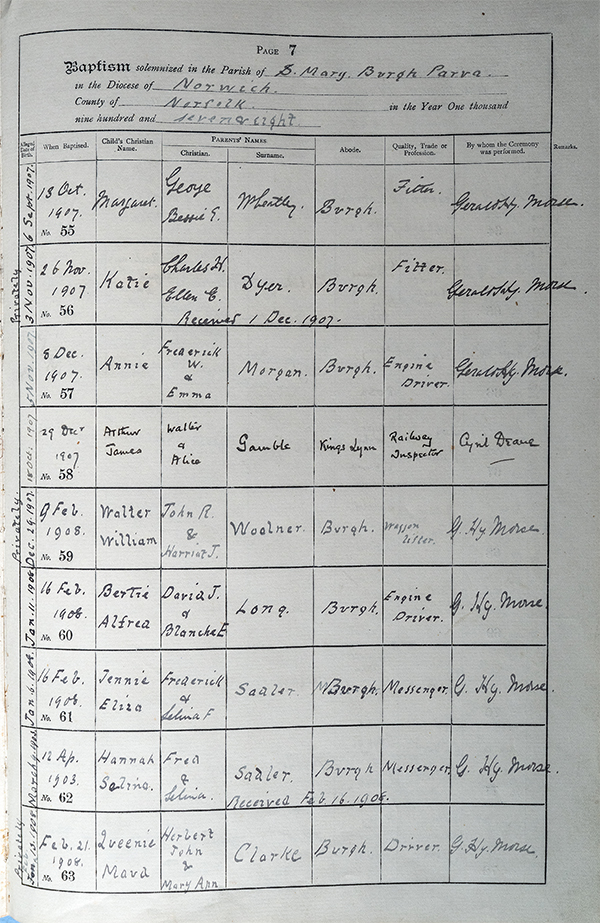 PAGE 7
Baptism solemnized in the Parish of S. Mary, Burgh Parva.
in the Diocese of Norwich.
County of Norfolk. in the Year One thousand
nine hundred and seven & eight.
Alleged Date of Birth. When Baptised. Child's Christian Name. PARENTS' NAMES Christian. Surname. Abode. Quality, Trade or Profession. By whom the Ceremony was performed. Remarks.
6 Sept. 1907. 13 Oct. 1907. No. 55 Margaret. George Bessie E. Wheatley. Burgh. Fitter. Morse.
Privately 3 Nov. 1907. 26 Nov. 1907 No. 56 Katie Charles H. Ellen C. Dyer. Burgh. Fitter. Morse.
Received 1 Dec. 1907.
5 Nov. 1907 8 Dec. 1907. No. 57 Annie Frederick W. & Emma Morgan. Burgh. Engine Driver. Morse.
Oct. 1907 29 Decr 1907 No. 58 Arthur James Walter & Alice Gamble Kings Lynn Railway Inspector Cyril Deane
Privately. Dec. 29. 1907. 9 Feb. 1908. No. 59 Walter William John R. & Harriet J. Woolner. Burgh. G. Hy Morse.
Jan. 11. 1908 16 Feb. 1908. No. 60 Bertie Alfred David J. & Blanche E. Long. Burgh. Engine Driver. G. Hy. Morse.
Jan 6. 1908. 16 Feb. 1908. No. 61 Jennie Eliza Frederick & Selina F Sadler. Burgh. Messenger. G. Hy. Morse.
March 9. 12 Ap. 1903. No. 62 Hannah Salina. Fred & Selina. Sadler. Burgh Messenger. G. Hy. Morse.
Received Feb 16. 1908.
Privately Jan. 13. 1908 Feb. 21. 1908. No. 63 Queenie Maud Herbert John & Mary Ann. Clarke Burgh. Driver. G. Hy Morse.